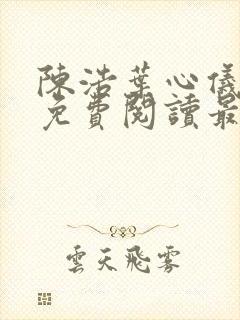 陳浩葉心儀
免費閱讀最
雲天飛霧